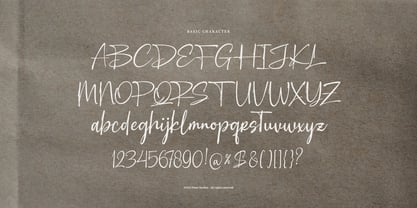 BASIC CHARACTER
ABCDEFGHIJKL
MNOPQRSTUVWXYZ
abcdefghijklmnopqrstuvwxyz
1234567890!@%$&()[]?